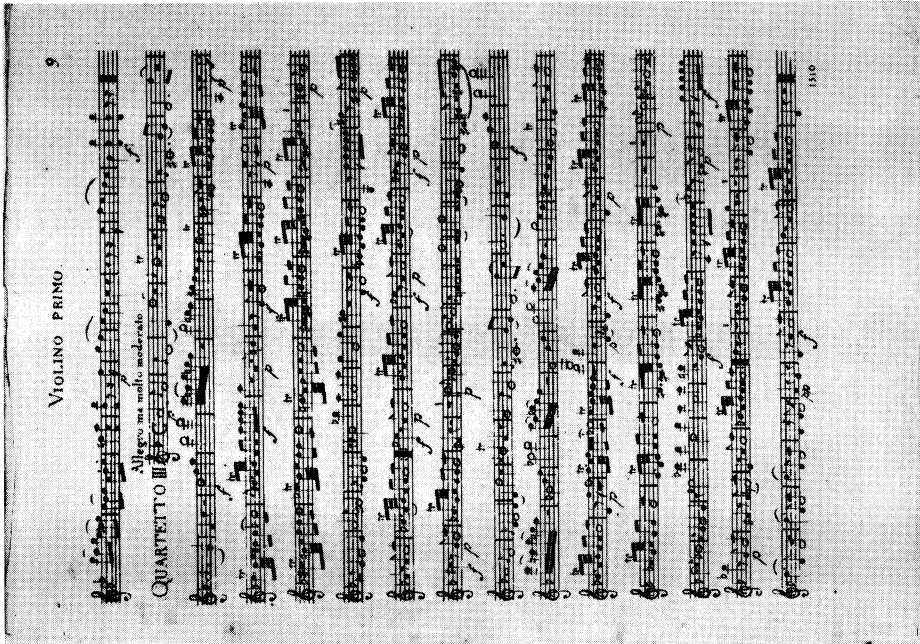 VIOLINO PRIMO 9
Allegro ma molto moderato
QUARTETTO III
1510